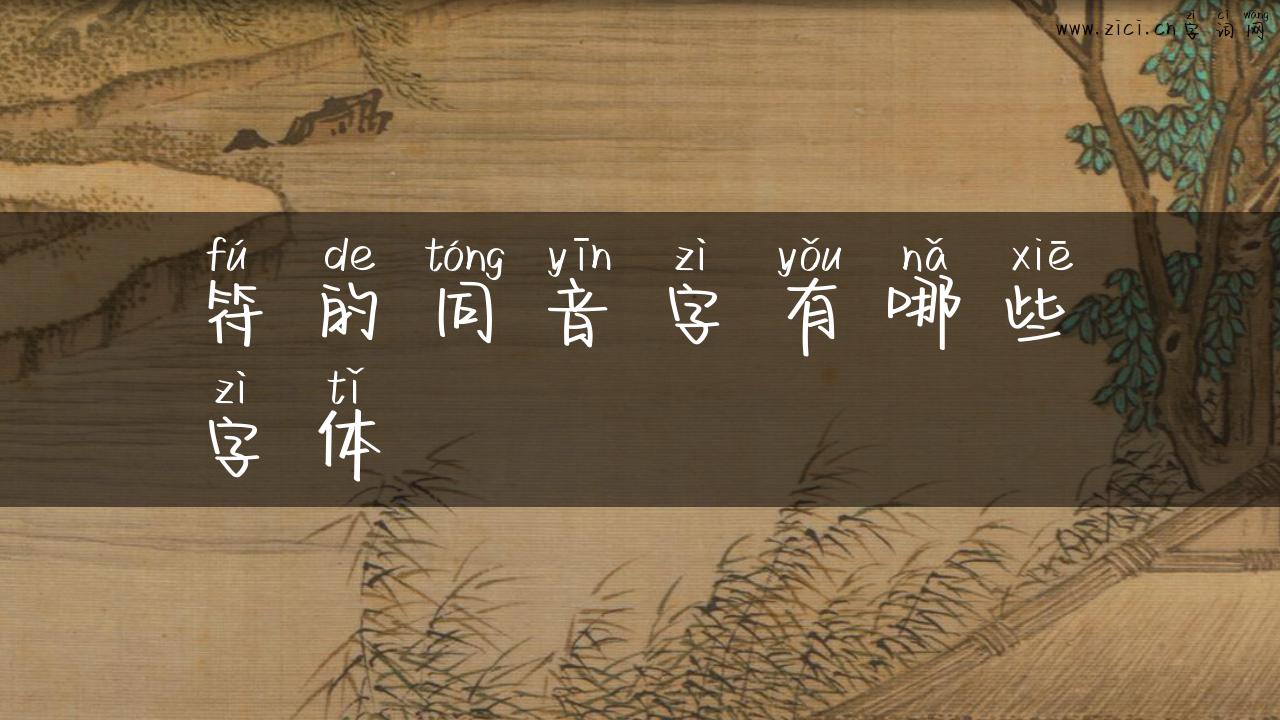 zì cí wǎng
www.zici.cn字词网
fú de tóng yīn zì yǒu nǎ xiē
符的同音字有哪些
zì tǐ
字体